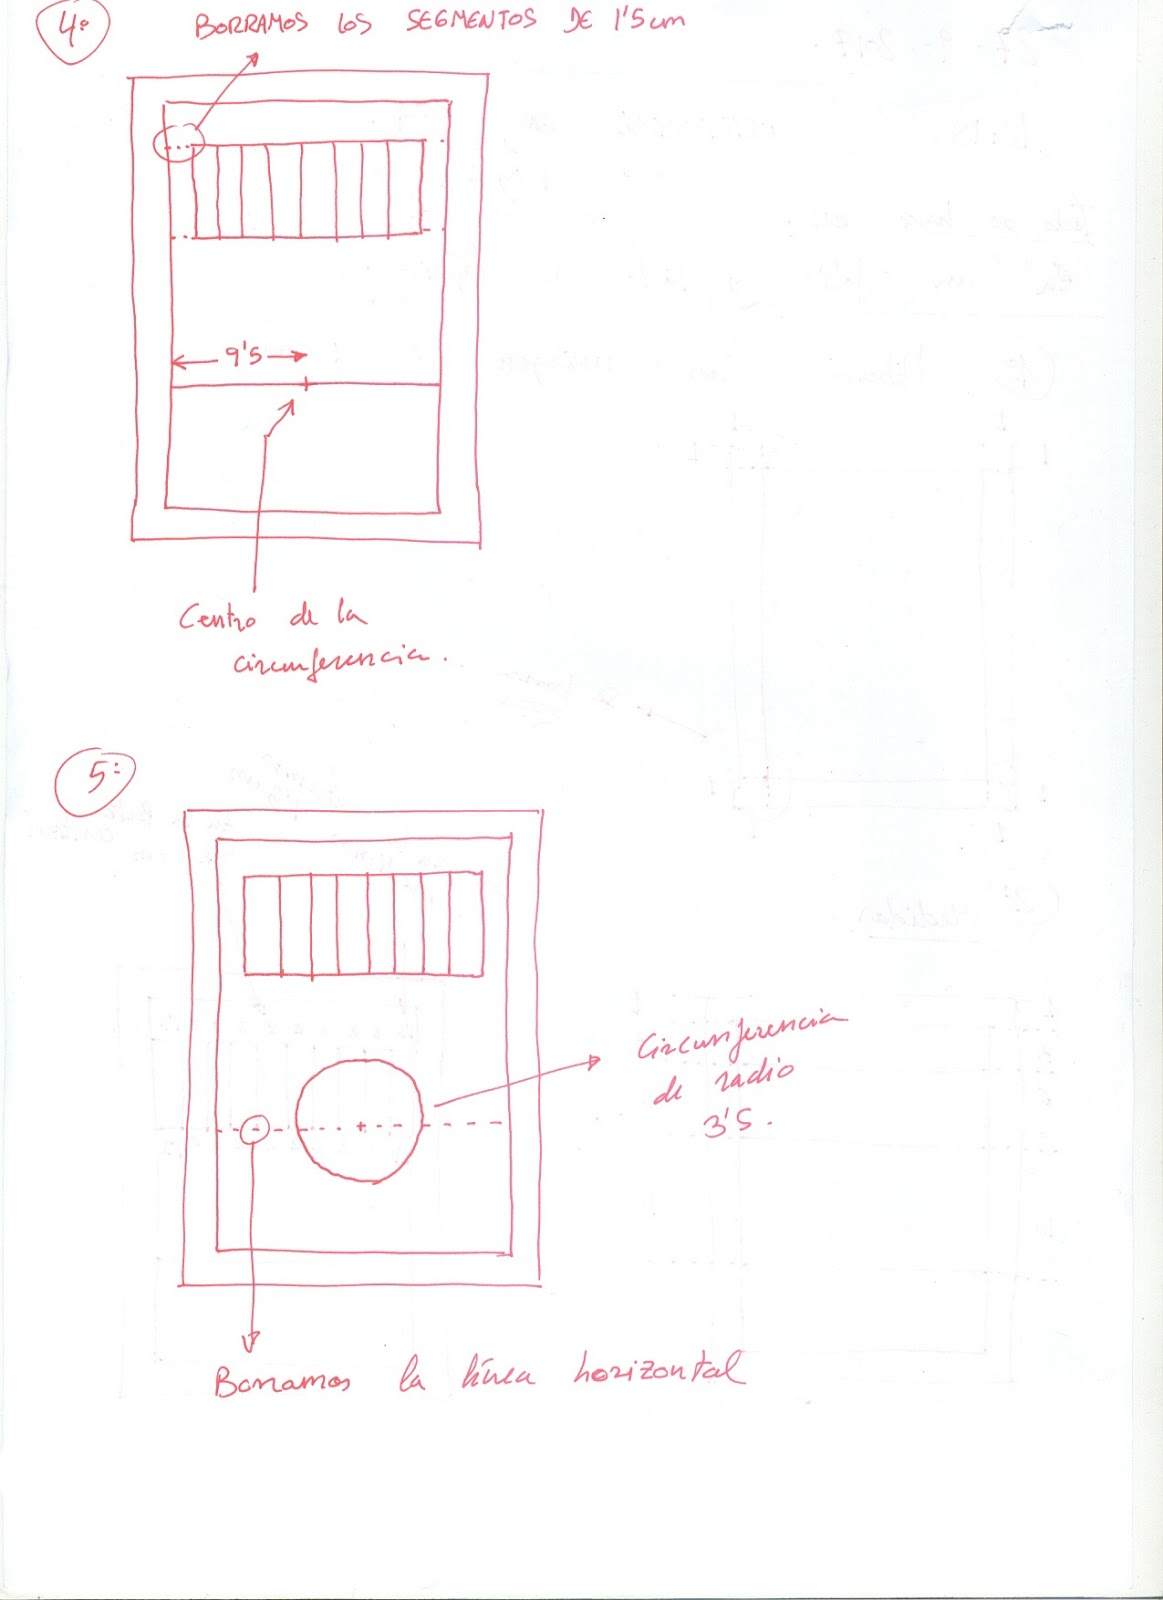 4º
BORRAMOS LOS SEGMENTOS DE 1'5 cm
9'5
Centro de la
circunferencia.
5º
Circunferencia
de radio
3'5.
Borramos la línea horizontal